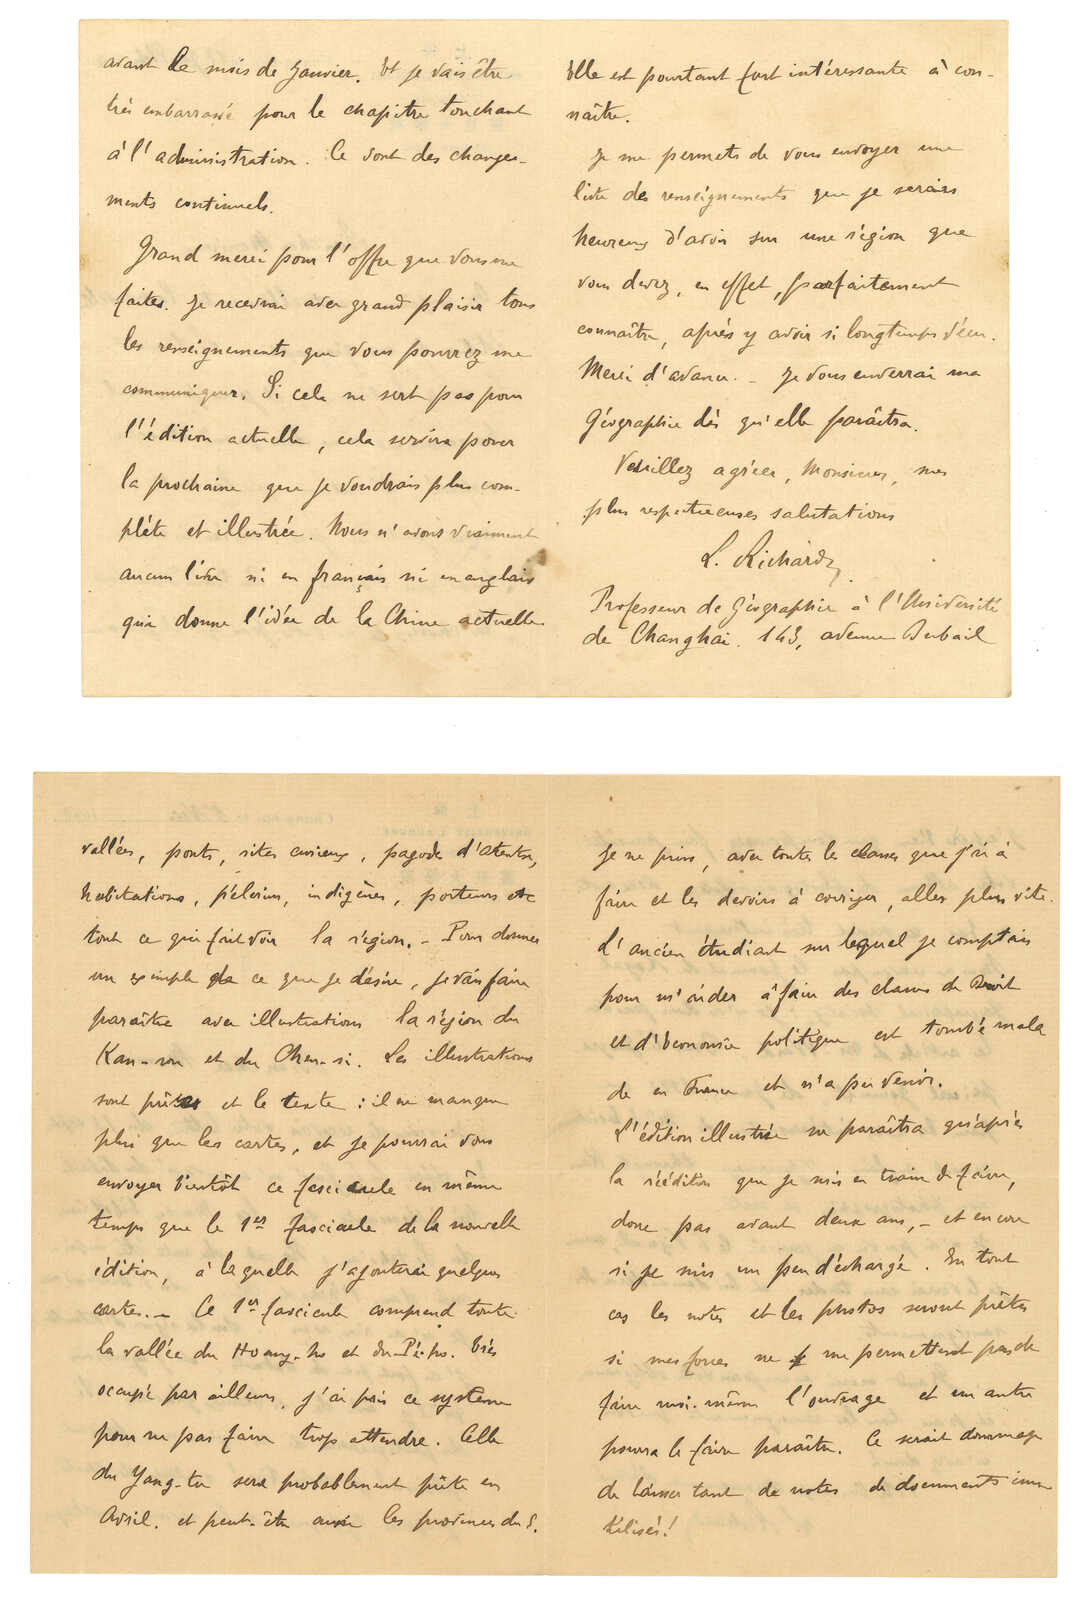 avant le mois de Janvier. Et je vais être
très embarrassé pour le chapitre touchant
à l'administration. Ce sont des change-
ments continuels.
Grand merci pour l'offre que vous me
faites. Je recevrai avec grand plaisir tous
les renseignements que vous pourrez me
communiquer. Si cela ne sert pas pour
l'édition actuelle, cela servira pour
la prochaine que je voudrais plus com-
plète et illustrée. Nous n'avons vraiment
aucun livre ni en français ni en anglais
qui donne l'idée de la Chine actuelle
Elle est pourtant fort intéressante à con-
naître.
Je me permets de vous envoyer une
liste des renseignements que je serais
heureux d'avoir sur une région que
vous devez, en effet, parfaitement
connaître, après y avoir si longtemps vécu.
Merci d'avance. - Je vous enverrai ma
Géographie dès qu'elle paraîtra.
Veuillez agréer, Monsieur, mes
plus respectueuses salutations
L. Richard
Professeur de Géographie à l'Université
de Changhai. 143, avenue Dubail
vallées, ponts, sites curieux, pagodes d'Atentse,
habitations, pélerins, indigènes, porteurs etc
tout ce qui fait voir la région. - Pour donner
un exemple de ce que je désire, je vais faire
paraître avec illustrations la région du
Kan-sou et du Chen-si. Les illustrations
sont prêtes et le texte : il ne manque
plus que les cartes, et je pourrai vous
envoyer bientôt ce fascicule en même
temps que le 1er fascicule de la nouvelle
édition, à laquelle j'ajouterai quelques
cartes. - Ce 1er fascicule comprend toute
la vallée du Hoang-ho et du Pé-ho. Très
occupé par ailleurs, j'ai pris ce système
pour ne pas faire trop attendre. Celle
du Yang-tse sera probablement prête en
Avril. et peut-être aussi les provinces du S.
Je ne puis, avec toutes les classes que j'ai à
faire et les devoirs à corriger, aller plus vite.
L'ancien étudiant sur lequel je comptais
pour m'aider à faire des classes de Droit
et d'économie politique est tombé mala
de en France et n'a pu venir.
L'édition illustrée ne paraîtra qu'après
la réédition que je suis en train de faire,
donc pas avant deux ans, - et encore
si je suis un peu déchargé. En tout
cas les notes et les photos seront prêtes
si mes forces ne me permettent pas de
faire moi-même l'ouvrage et un autre
pourra le faire paraître. Ce serait dommage
de laisser tant de notes de documents inu
tilisés!